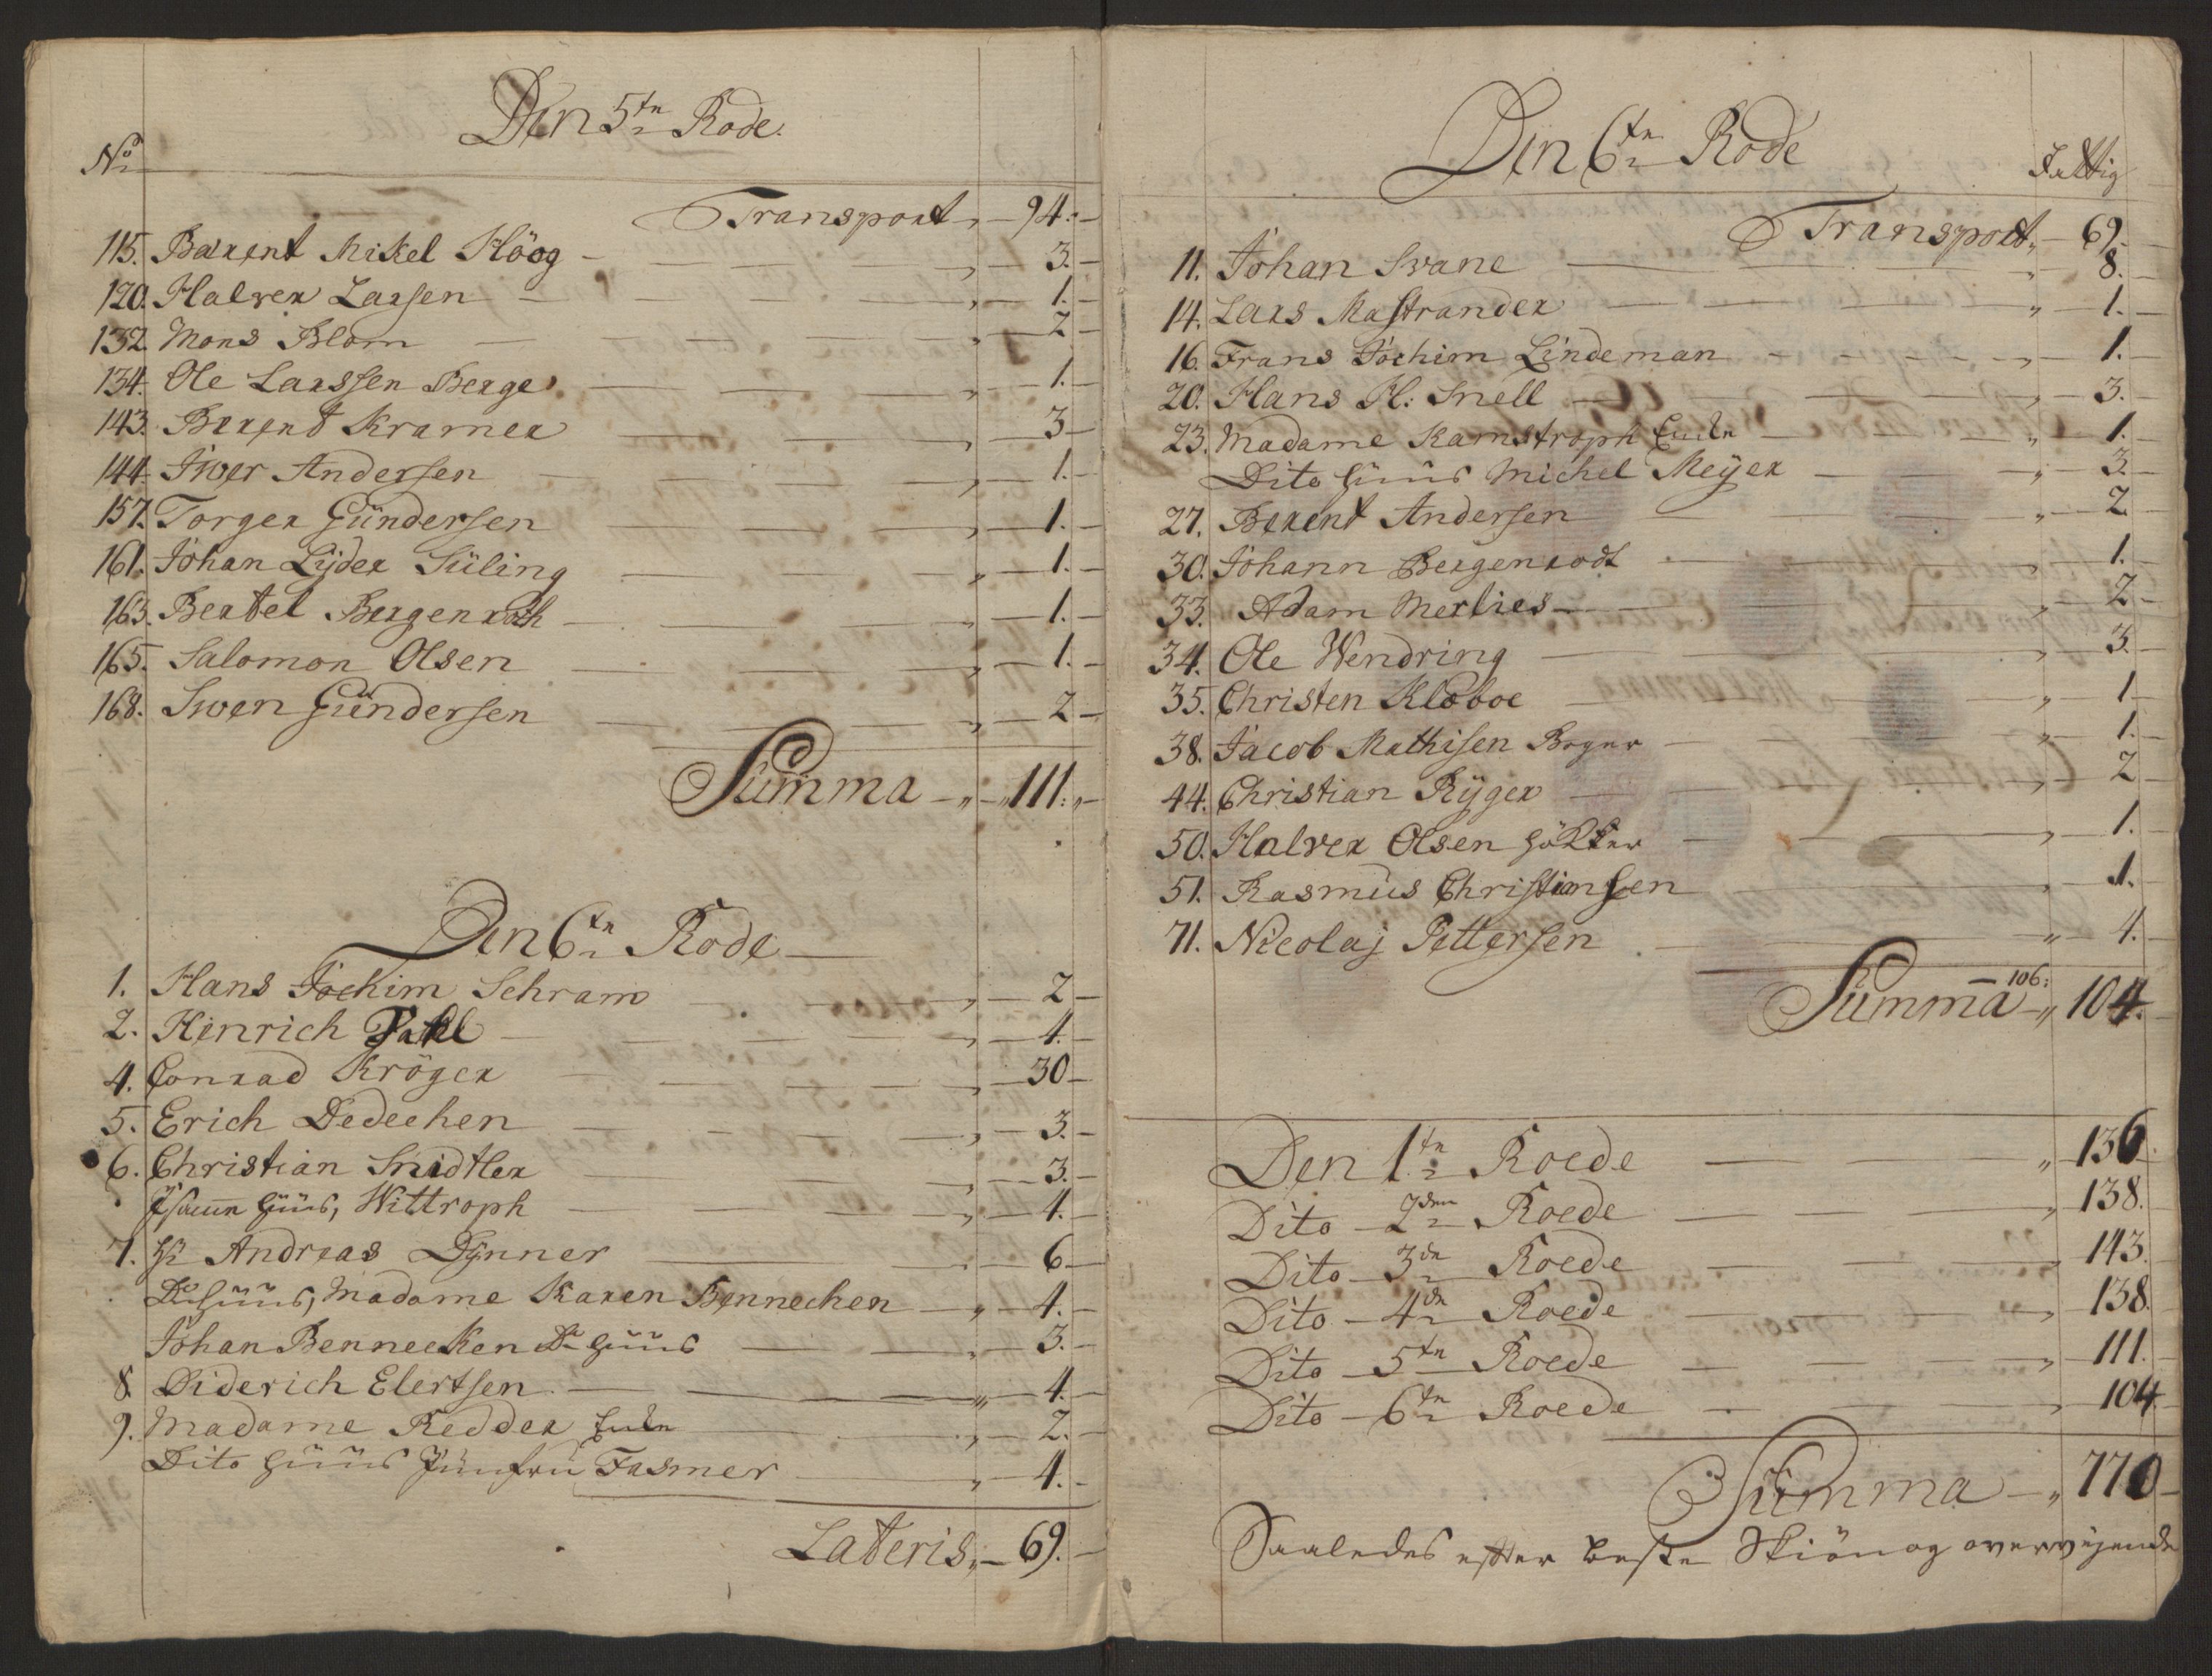 Den 5te Rode.
No
Transport „ 94.
115. Barent Mikel Höög 3.
120. Halver Larsen 1.
132. Mons Blom 2
134. Ole Larssen Berge 1.
143. Berent Kramer 3
144. Iwer Andersen 1.
157. Torger Gündersen 1.
161. Johan Lyder Süling 1.
163. Bertel Bergenroth 1.
165. Salomon Olsen 1.
168. Swen Gündersen 2
Summa „ 111.
Den 6te Rode
1. Hans Jochim Schram 2
2. Hinrich Pahl 4.
4. Conrad Kröger 30
5. Erich Dedechen 3.
6. Christian Snidtler 3.
huus, Wittroph 4.
7. Hr Andreas Dynner 6
Do huus, Madame Karen Bennechen 4.
Johan Bennecken Do huus 3.
8. Diderich Elertsen 4.
9. Madame Redder Encke 2.
Dito huus Jūnfru Fasmer 4.
Lateris „ 69.
Den 6te Rode
Fattig
Transport „ 69.
11. Johan Svane 8.
14. Lars Mastrander 1.
16. Frans Jochim Lindeman 1.
20. Hans H: Snell 3.
23. Madame Kamstroph Encke 1.
Dito huus Michel Meyer 3.
27. Berent Andersen 2
30. Johann Bergenrodt 1.
33. Adam Merlies 2
34. Ole Wendring 3.
35. Christen Kloboe 1
38. Jacob Mathisen Bøger 1.
44. Christian Ryger 2
50. Halver Olsen Høkker 1.
51. Rasmus Christiansen 1.
71. Nicolaj Pettersen 4.
106:
Summa „ 104.
Den 1te Roede „ 136
Dito 2den Roede „ 138.
Dito 3de Roede 143.
Dito 4de Roede 138.
Dito 5te Roede 111.
Dito 6te Roede 104
Summa „ 770
Saaledes efter beste Skiön og overvejende